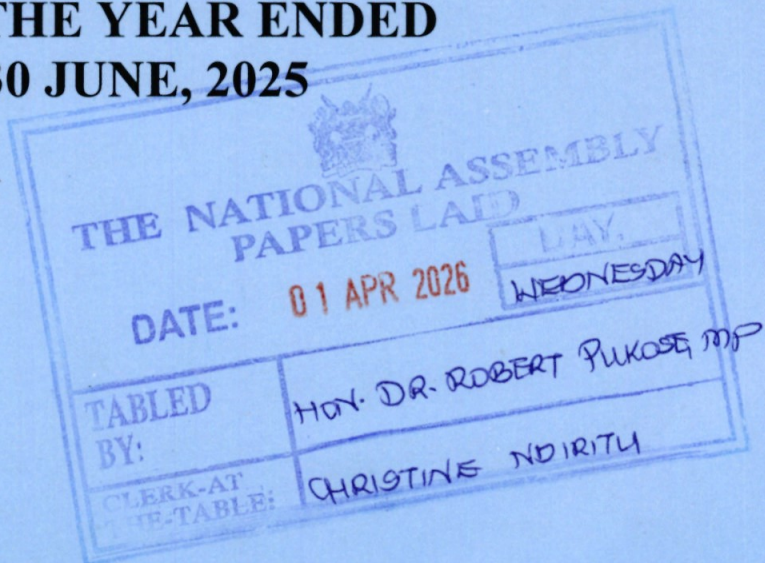 THE YEAR ENDED
30 JUNE, 2025
THE NATIONAL ASSEMBLY
PAPERS LAID
DAY.
DATE: 01 APR 2026 WEDNESDAY
TABLED BY: HON. DR. ROBERT PUKOSE MP
CLERK-AT THE-TABLE: CHRISTINE NDIRITU